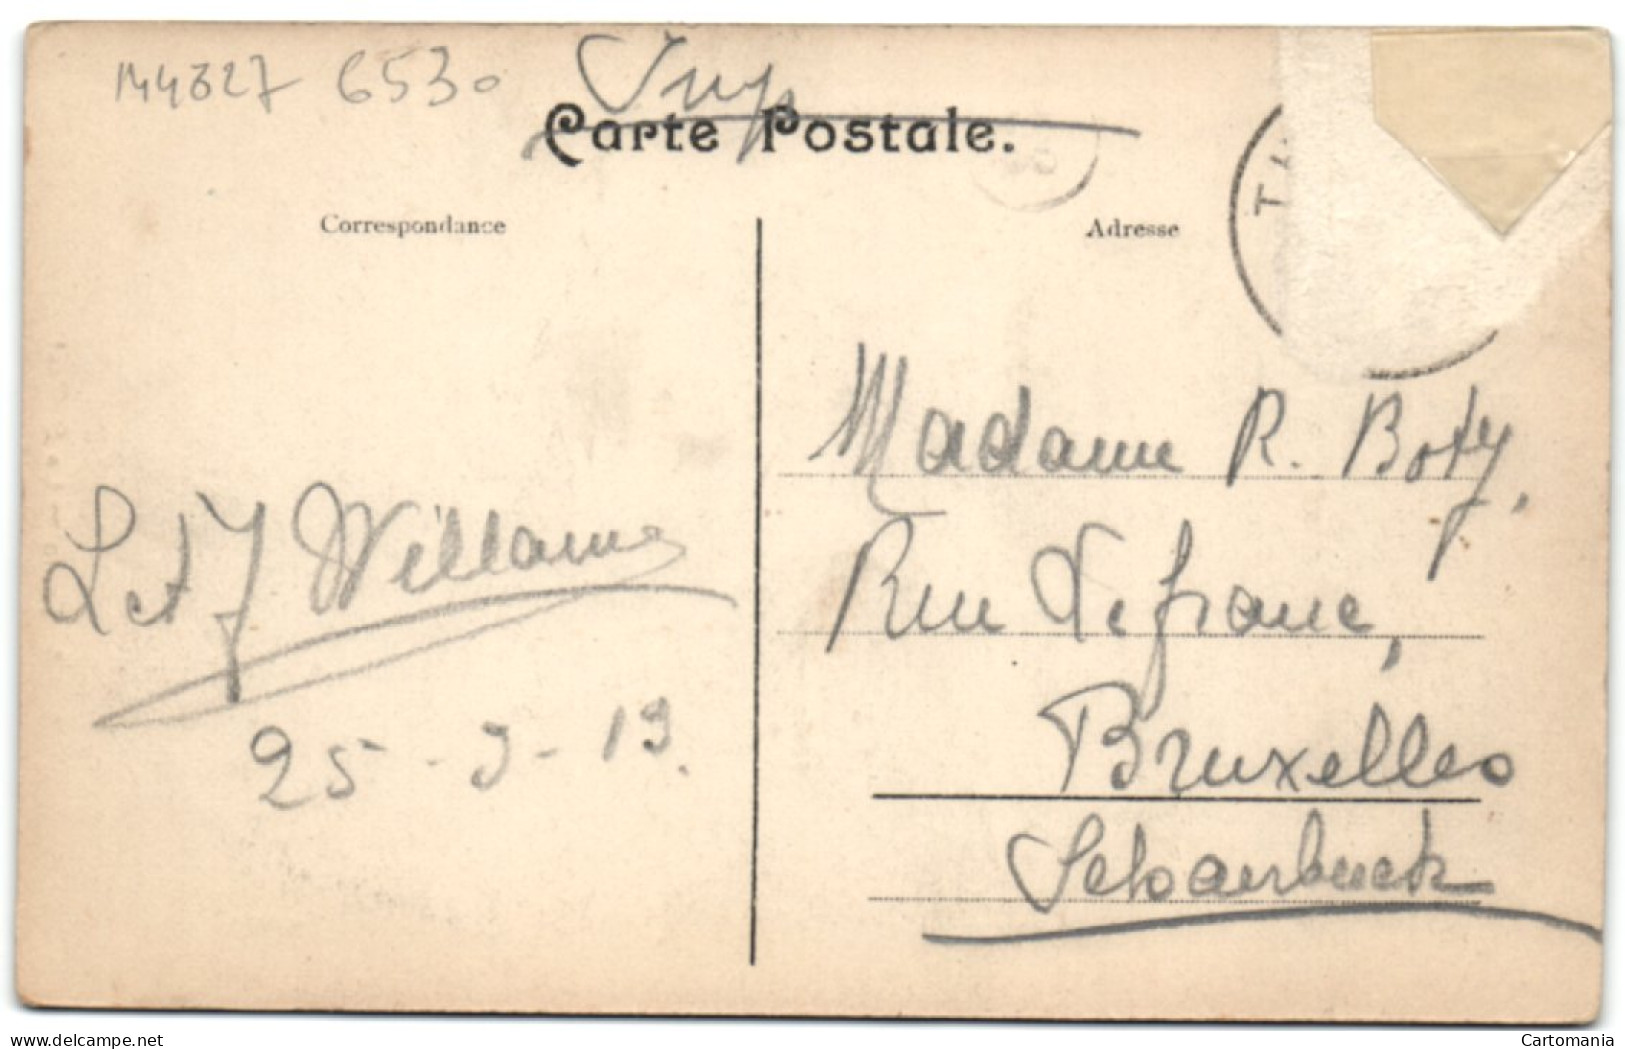 144327 6530
Imp
Carte Postale.
Correspondance
Adresse
Madame R. Boty,
Rue Lefranc,
Bruxelles
Schaerbeek
L et J Willame
25-9-13.
www.delcampe.net
Cartomania